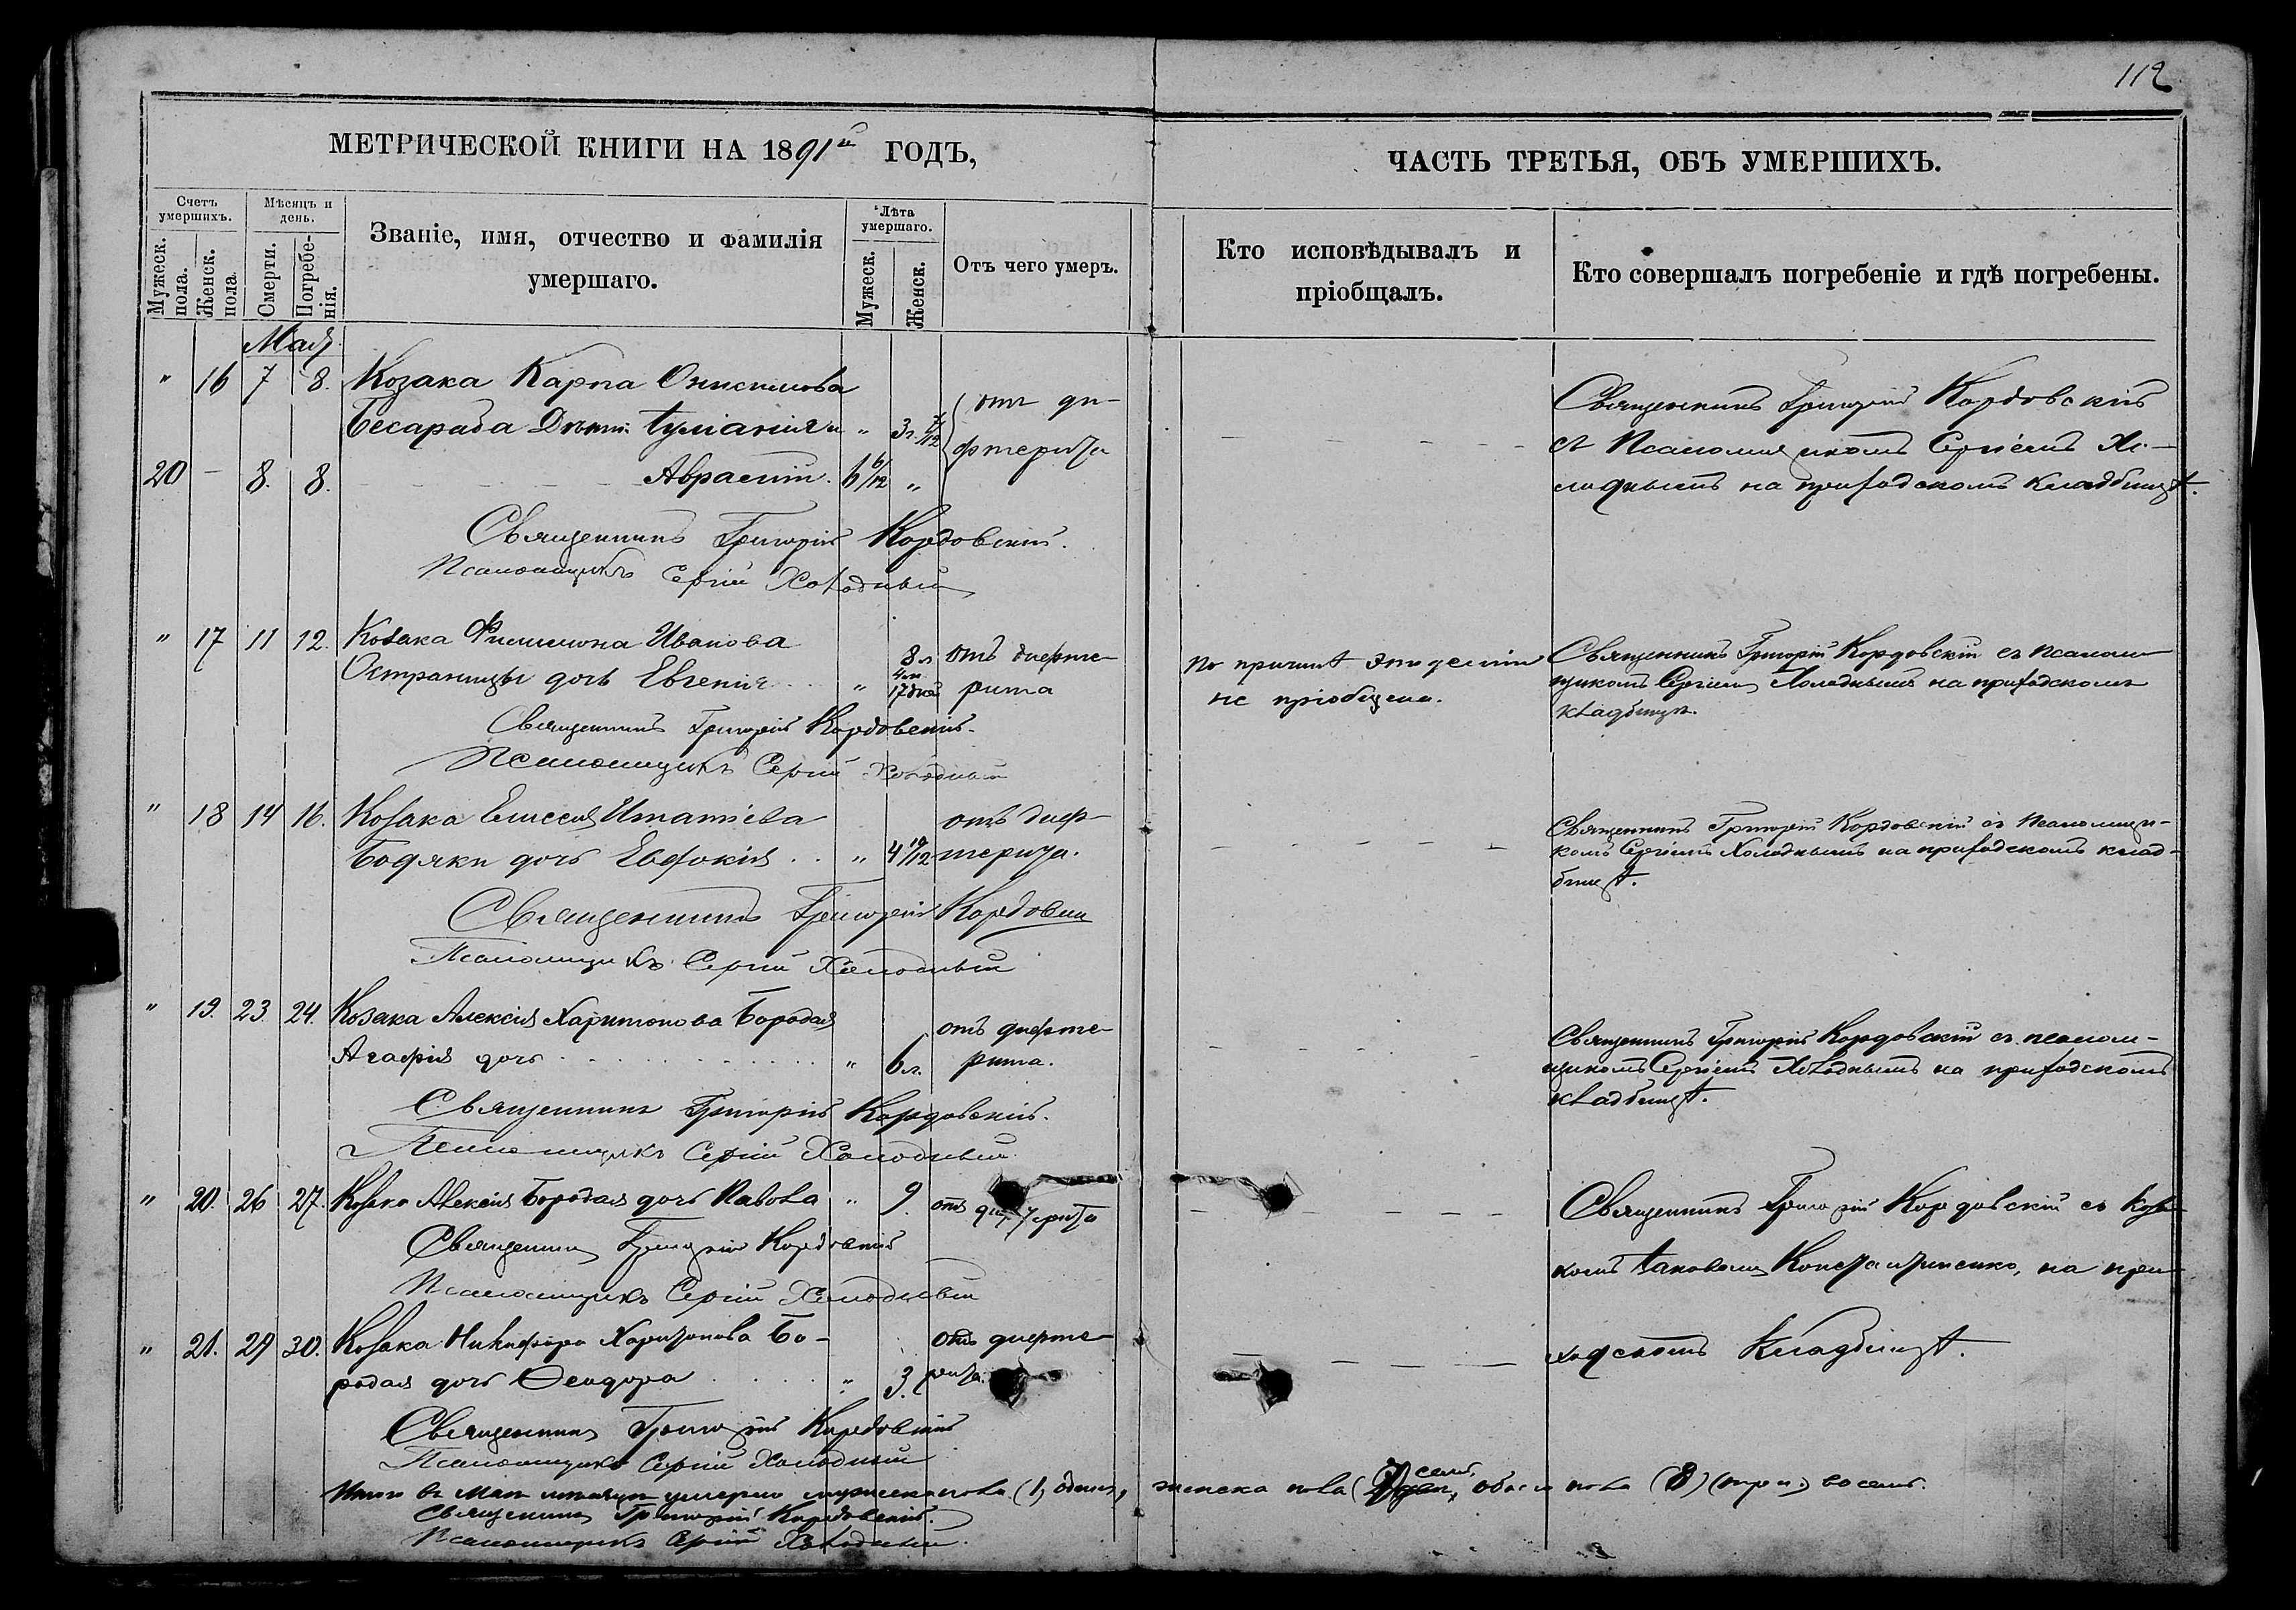 112
МЕТРИЧЕСКОЙ КНИГИ НА 1891й ГОДЪ,
ЧАСТЬ ТРЕТЬЯ, ОБЪ УМЕРШИХЪ.
Счетъ умершихъ.
Мужеск. пола.
Женск. пола
Мѣсяцъ и день.
Смерти.
Погребенія.
Званіе, имя, отчество и фамилія
умершаго.
Лѣта умершаго.
Мужеск.
Женск.
Отъ чего умеръ.
Кто исповѣдывалъ и
пріобщалъ.
Кто совершалъ погребеніе и гдѣ погребены.
Мая
" 16 7 8. Козака Карпа Онисимова
Бесараба Дѣти: Іуліанія " 3 г. отъ ди-
фтерита
20 – 8. 8. 6/12 "
Священникъ Григорій Кордовскій
съ Псаломщикомъ Сергіемъ Хо-
лоднымъ на приходскомъ кладбищѣ.
Священникъ Григорій Кордовскій.
Псаломщикъ Сергій Холодный
" 17 11 12. Козака Филимона Иванова
Остраницы дочь Евгенія " 8 л 4 м 17 дней отъ дифте-
рита
По причинѣ эпидеміи
не пріобщена.
Священникъ Григорій Кордовскій съ псалом-
щикомъ Сергіемъ Холоднымъ на приходскомъ
кладбищѣ.
Священникъ Григорій Кордовскій.
Псаломщикъ Сергій Холодный
" 18 14 16. Козака Елисея Игнатіева
Бодяки дочь Евдокія . . " 4 10/12 отъ диф-
терита.
Священникъ Григорій Кордовскій съ Псаломщи-
комъ Сергіемъ Холоднымъ на приходскомъ клад-
бищѣ.
Священникъ Григорій Кордовскій
Псаломщикъ Сергій Холодный
" 19. 23. 24. Козака Алексія Харитонова Бородая
Агафія дочь " 6 л. отъ дифте-
рита.
Священникъ Григорій Кордовскій съ псалом-
щикомъ Сергіемъ Холоднымъ на приходскомъ
кладбищѣ.
Священникъ Григорій Кордовскій.
Псаломщикъ Сергій Холодный
" 20. 26 27. Козака Алексія Бородая дочь " 9. отъ дифтерита
Священникъ Григорій Кордовскій съ Коза-
комъ Іаковомъ на при-
ходскомъ Кладбищѣ.
Священникъ Григорій Кордовскій
Псаломщикъ Сергій Холодный
" 21. 29 30. Козака Никифора Харитонова Бо-
родая дочь Ѳеодора " 3. отъ дифте-
рита.
Священникъ Григорій Кордовскій
Псаломщикъ Сергій Холодный
Итого въ Маѣ мѣсяцѣ умерло мужеска пола (1) одинъ, женска пола (7) семь, обоего пола (8) восемь.
Священникъ Григорій Кордовскій.
Псаломщикъ Сергій Холодный.